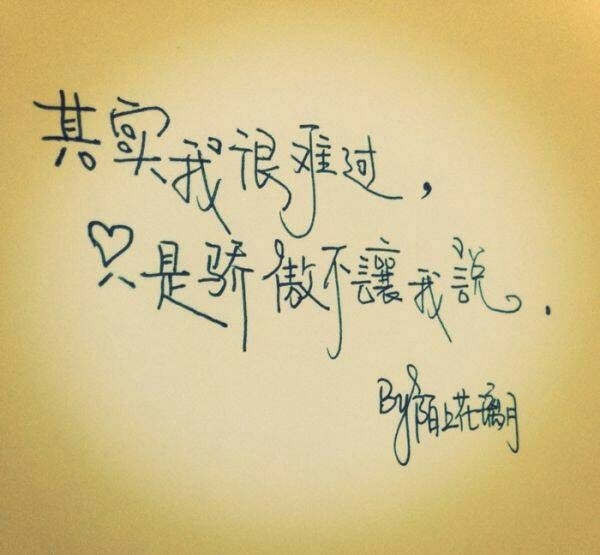 其实我很难过,
只是骄傲不讓我説.
By陌上花璃月